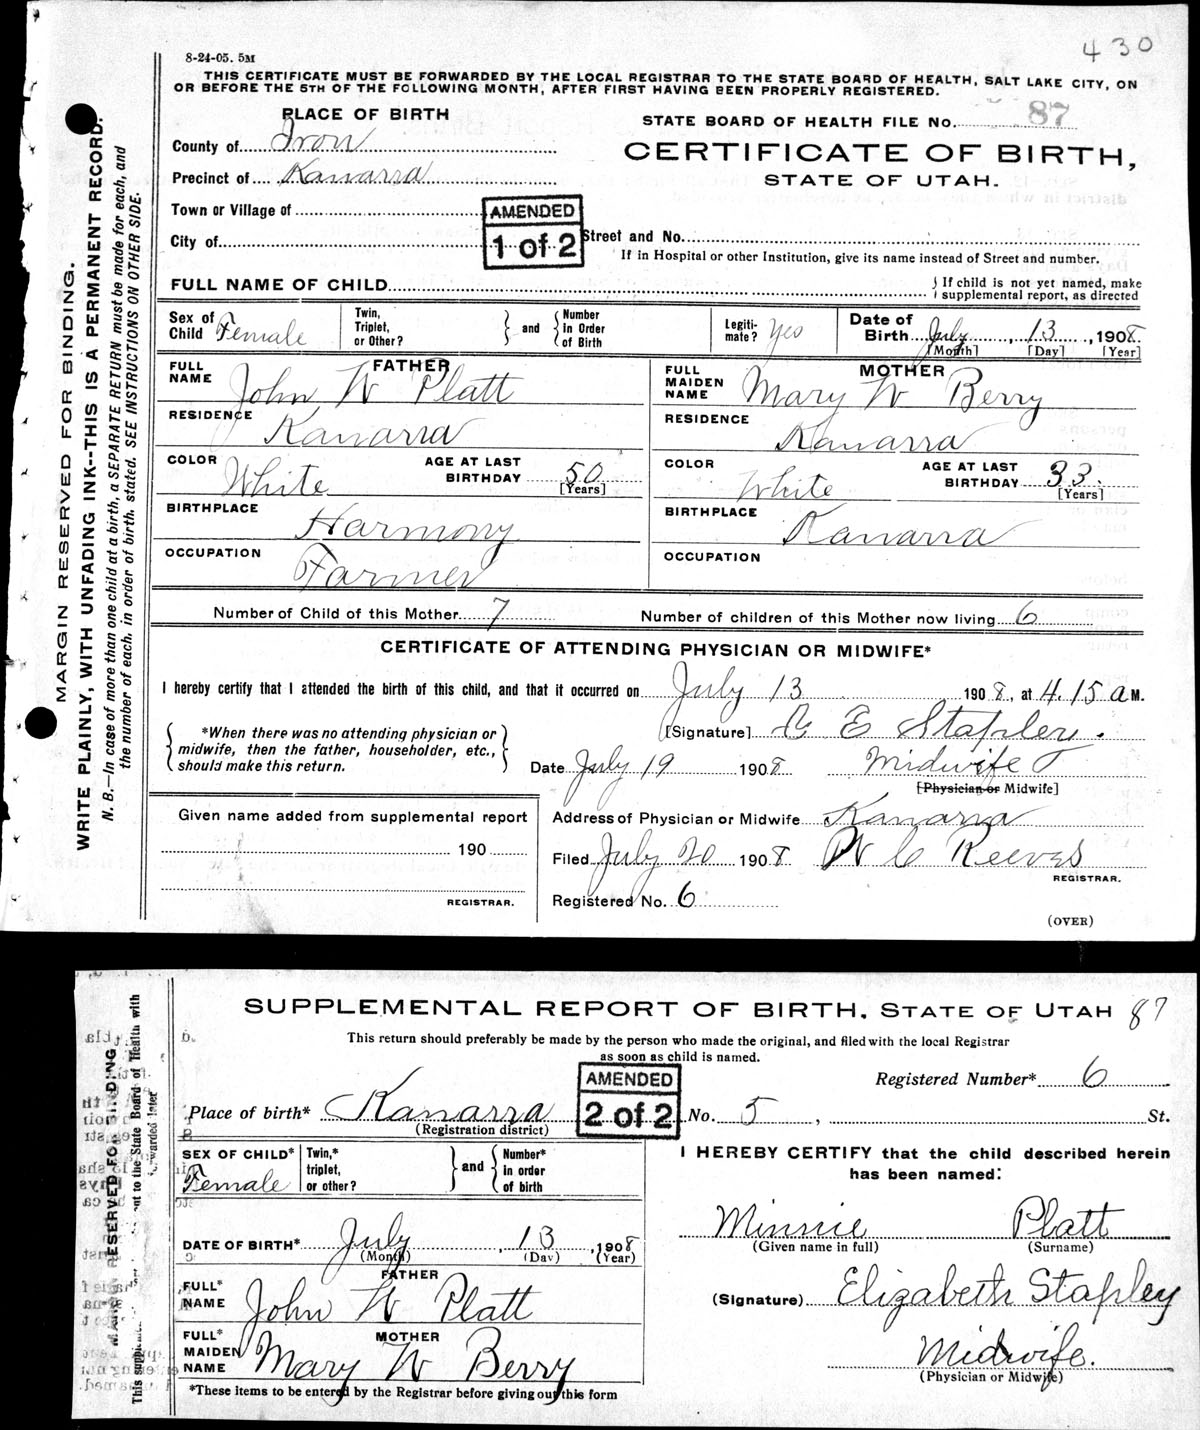 430
8-24-05. 5M
THIS CERTIFICATE MUST BE FORWARDED BY THE LOCAL REGISTRAR TO THE STATE BOARD OF HEALTH, SALT LAKE CITY, ON
OR BEFORE THE 5TH OF THE FOLLOWING MONTH, AFTER FIRST HAVING BEEN PROPERLY REGISTERED.
MARGIN RESERVED FOR BINDING.
WRITE PLAINLY, WITH UNFADING INK--THIS IS A PERMANENT RECORD.
N. B.—In case of more than one child at a birth, a SEPARATE RETURN must be made for each, and
the number of each, in order of birth, stated. SEE INSTRUCTIONS ON OTHER SIDE.
PLACE OF BIRTH
STATE BOARD OF HEALTH FILE No. 87
County of Iron
CERTIFICATE OF BIRTH,
Precinct of Kanarra
STATE OF UTAH.
Town or Village of
AMENDED
1 of 2
City of
Street and No.
If in Hospital or other Institution, give its name instead of Street and number.
FULL NAME OF CHILD
If child is not yet named, make
supplemental report, as directed
Sex of Child Female
Twin, Triplet, or Other?
and
Number in Order of Birth
Legiti- mate? yes
Date of Birth July, 13, 1908
[Month] [Day] [Year]
FATHER
FULL NAME John W Platt
MOTHER
FULL MAIDEN NAME Mary W Berry
RESIDENCE Kanarra
RESIDENCE Kanarra
COLOR White AGE AT LAST BIRTHDAY 50 [Years]
COLOR White AGE AT LAST BIRTHDAY 33. [Years]
BIRTHPLACE Harmony
BIRTHPLACE Kanarra
OCCUPATION Farmer
OCCUPATION
Number of Child of this Mother 7 Number of children of this Mother now living 6
CERTIFICATE OF ATTENDING PHYSICIAN OR MIDWIFE*
I hereby certify that I attended the birth of this child, and that it occurred on July 13 1908, at 4.15 a M.
*When there was no attending physician or
midwife, then the father, householder, etc.,
should make this return.
[Signature] E Stapley.
Date July 19 1908 Midwife
[Physician or Midwife]
Given name added from supplemental report
190
REGISTRAR.
Address of Physician or Midwife Kanarra
Filed July 20 1908 W C Reeves
REGISTRAR.
Registered No. 6
(OVER)
SUPPLEMENTAL REPORT OF BIRTH, STATE OF UTAH 87
This return should preferably be made by the person who made the original, and filed with the local Registrar
as soon as child is named.
AMENDED
2 of 2
Registered Number* 6
Place of birth* Kanarra No. 5, St.
(Registration district)
SEX OF CHILD* Female
Twin,* triplet, or other?
and
Number* in order of birth
I HEREBY CERTIFY that the child described herein
has been named:
DATE OF BIRTH* July, 13, 1908
(Month) (Day) (Year)
Minnie Platt
(Given name in full) (Surname)
FATHER
FULL* NAME John W Platt
(Signature) Elizabeth Stapley
MOTHER
FULL* MAIDEN NAME Mary W Berry
Midwife.
(Physician or Midwife)
*These items to be entered by the Registrar before giving out this form